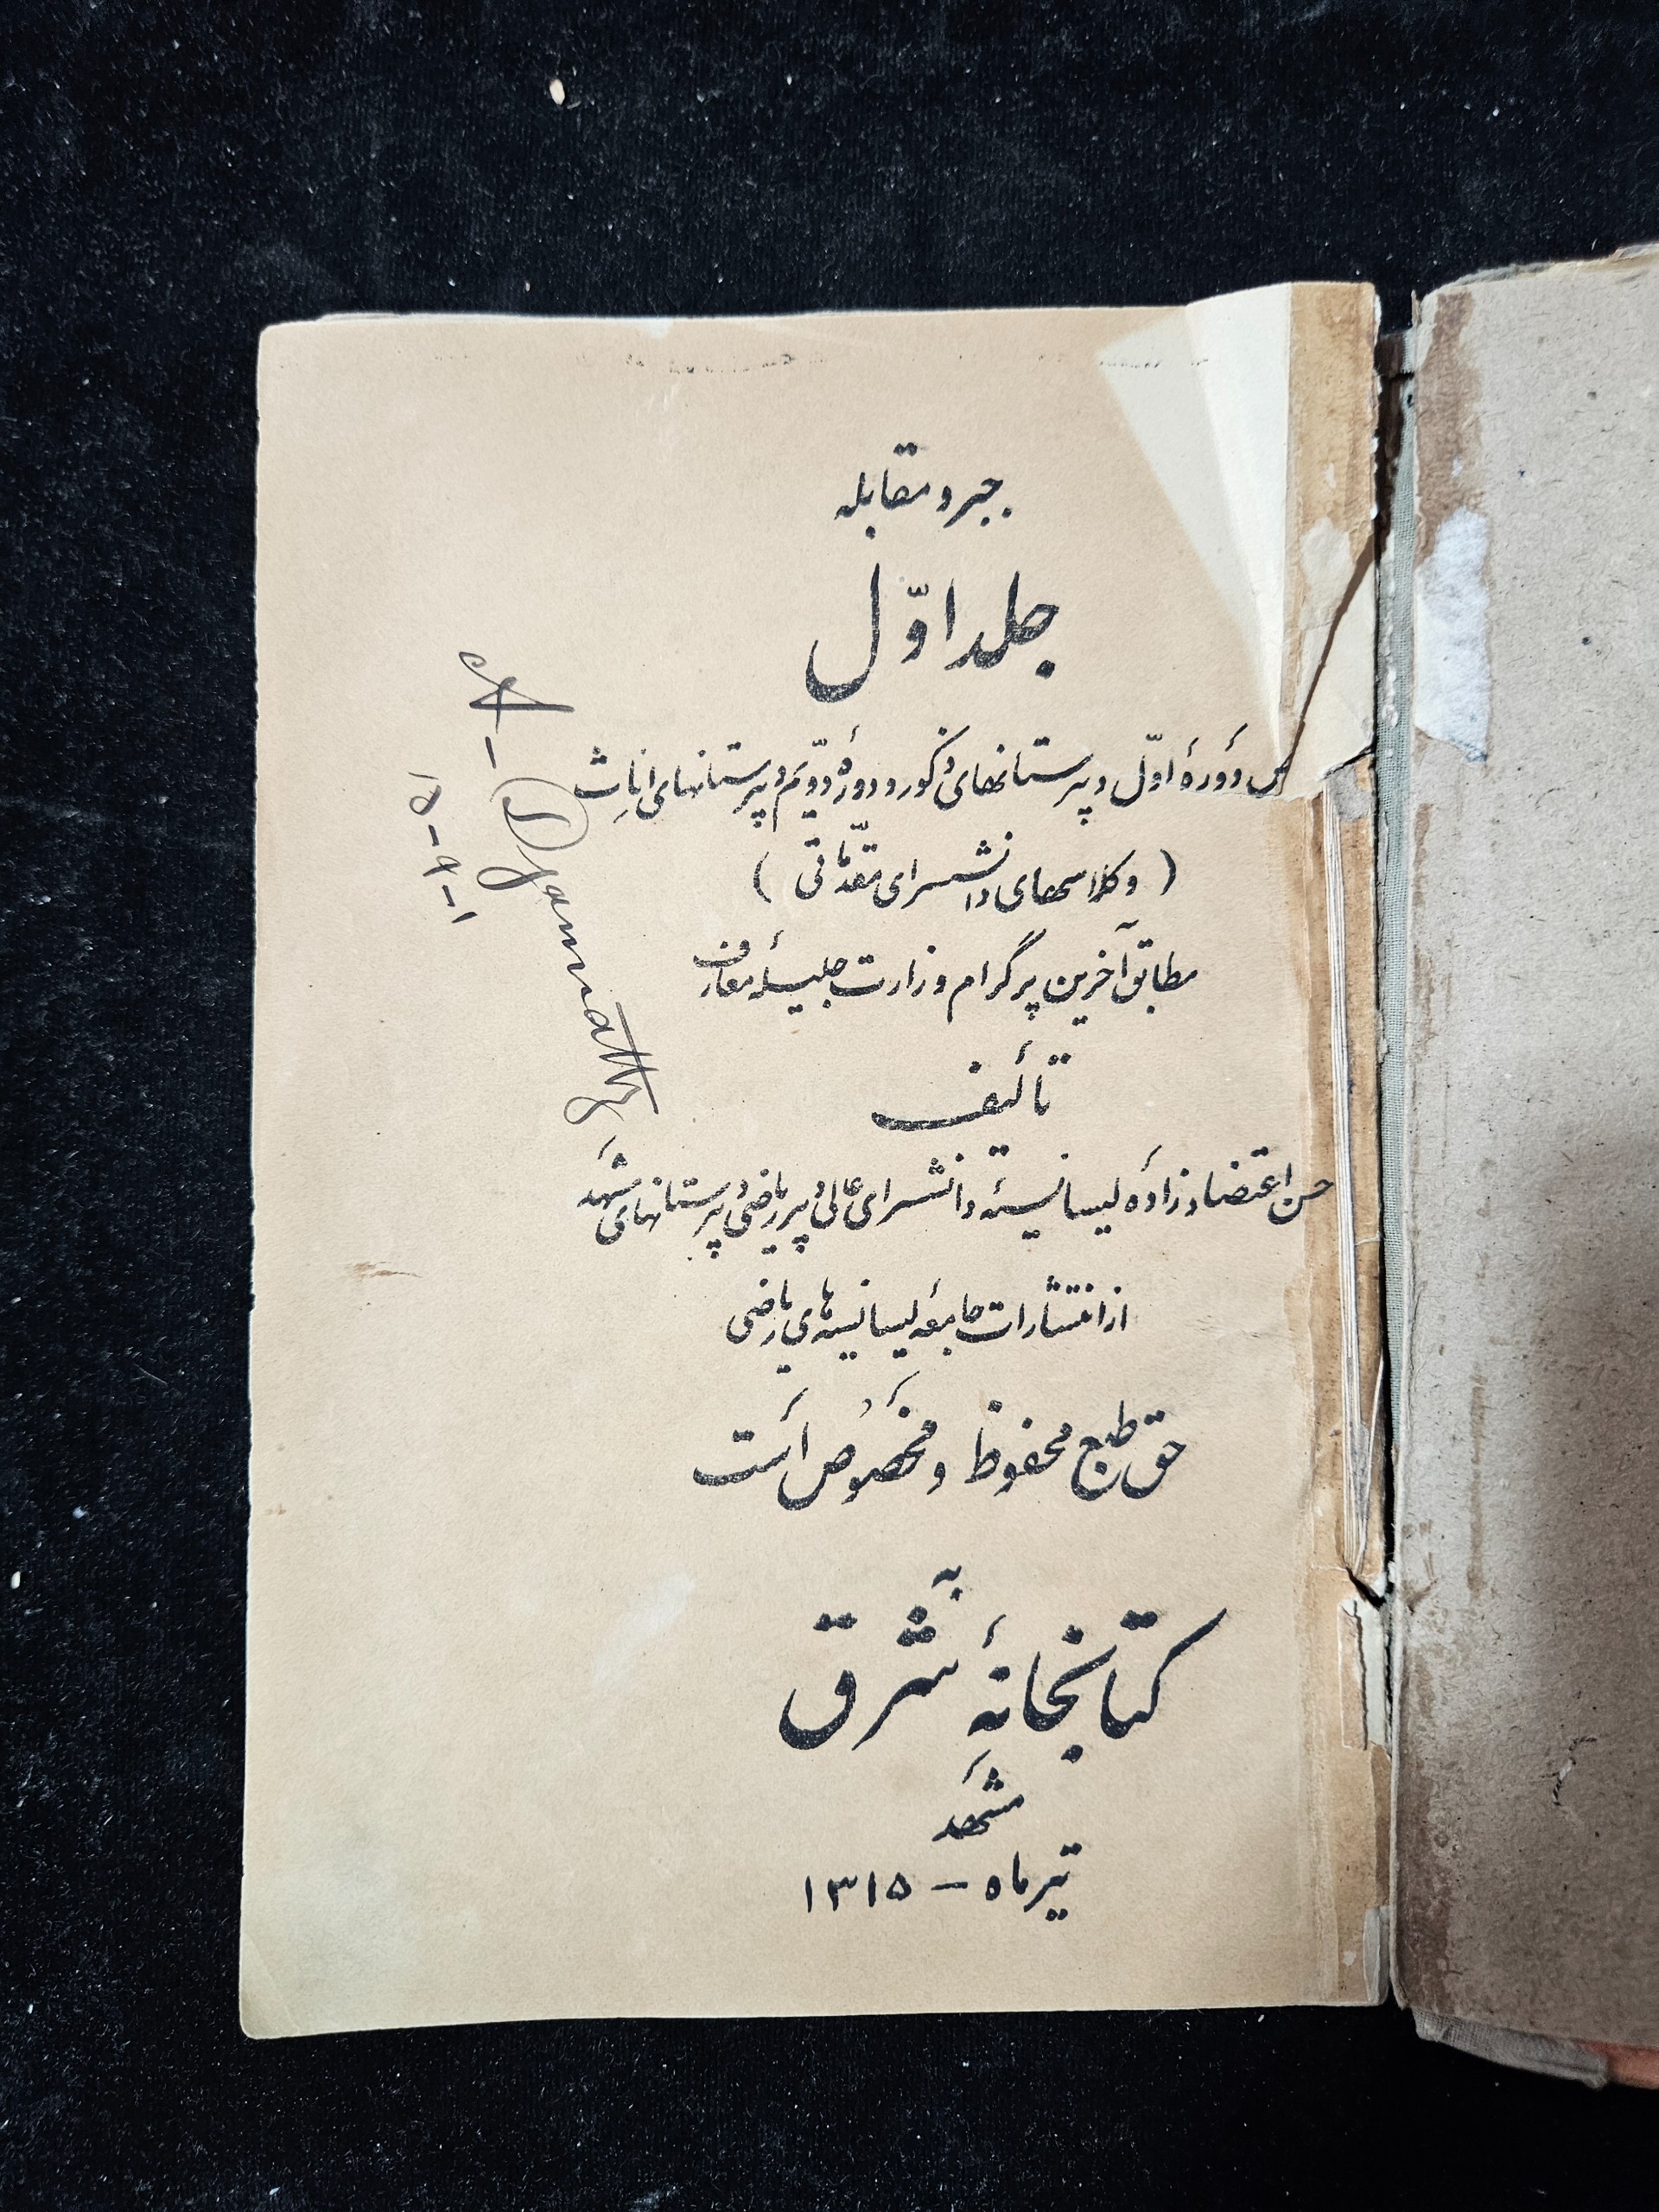 جبر و مقابله
جلد اوّل
دورهٔ اوّل دبیرستانهای ذکور و دورهٔ دوّم دبیرستانهای اناث
( و کلاسهای دانشسرای مقدّماتی )
مطابق آخرین پرگرام وزارت جلیلهٔ معارف
تألیف
حسن اعتضادزاده لیسانسیهٔ دانشسرای عالی دبیر ریاضی دبیرستانهای مشهد
از انتشارات جامعهٔ لیسانسیه‌های ریاضی
حق طبع محفوظ و مخصوص است
به
کتابخانهٔ شرق
مشهد
تیر ماه - ۱۳۱۵
۱۵-۹-۱